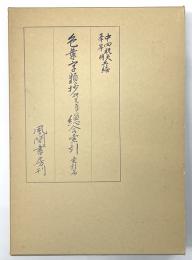 中田祝夫
峯岸明 共編
色葉字類抄 研究並びに 総合索引 索引篇
風間書房刊